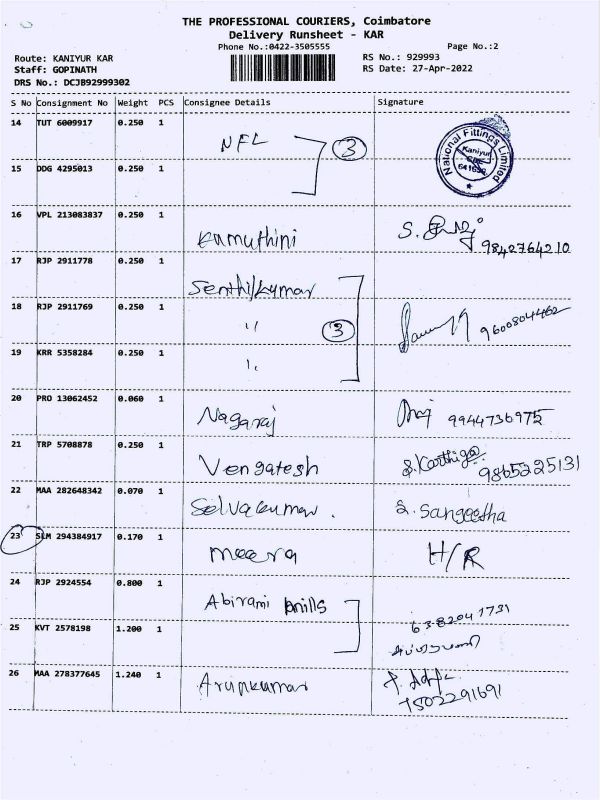 THE PROFESSIONAL COURIERS, Coimbatore
Delivery Runsheet - KAR
Phone No.:0422-3505555
Page No.:2
Route: KANIYUR KAR
RS No.: 929993
Staff: GOPINATH
RS Date: 27-Apr-2022
DRS No.: DCJB92999302
S No Consignment No Weight PCS Consignee Details Signature
14 TUT 6009917 0.250 1 NFL
3
National Fittings Limited
Kaniyur
15 DDG 4295013 0.250 1
16 VPL 213083837 0.250 1 Kumuthini S.
9842764210
17 RJP 2911778 0.250 1 Senthilkumar
18 RJP 2911769 0.250 1 ,, 3 9600804462
19 KRR 5358284 0.250 1 ,,
20 PRO 13062452 0.060 1 Nagaraj 9944736975
21 TRP 5708878 0.250 1 Vengatesh S. Karthiga
9865225131
22 MAA 282648342 0.070 1 Selvakumar. S. Sangeetha
23 SLM 294384917 0.170 1 meera H/R
24 RJP 2924554 0.800 1 Abirami mills
6382041731
25 KVT 2578198 1.200 1
26 MAA 278377645 1.240 1 Arunkumar
7502291691